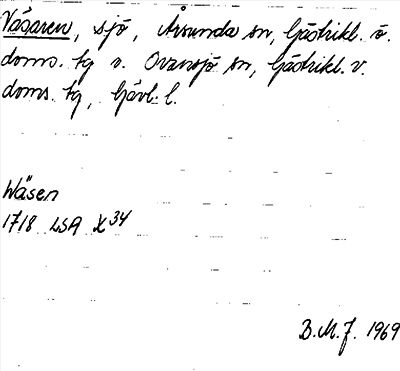 Våsaren, sjö, Årsunda sn, Gästrikl. ö.
doms. tg o. Ovansjö sn, Gästrikl. v.
doms. tg, Gävl. l.
Wäsen
1718 LSA X 34
B.M.J. 1969